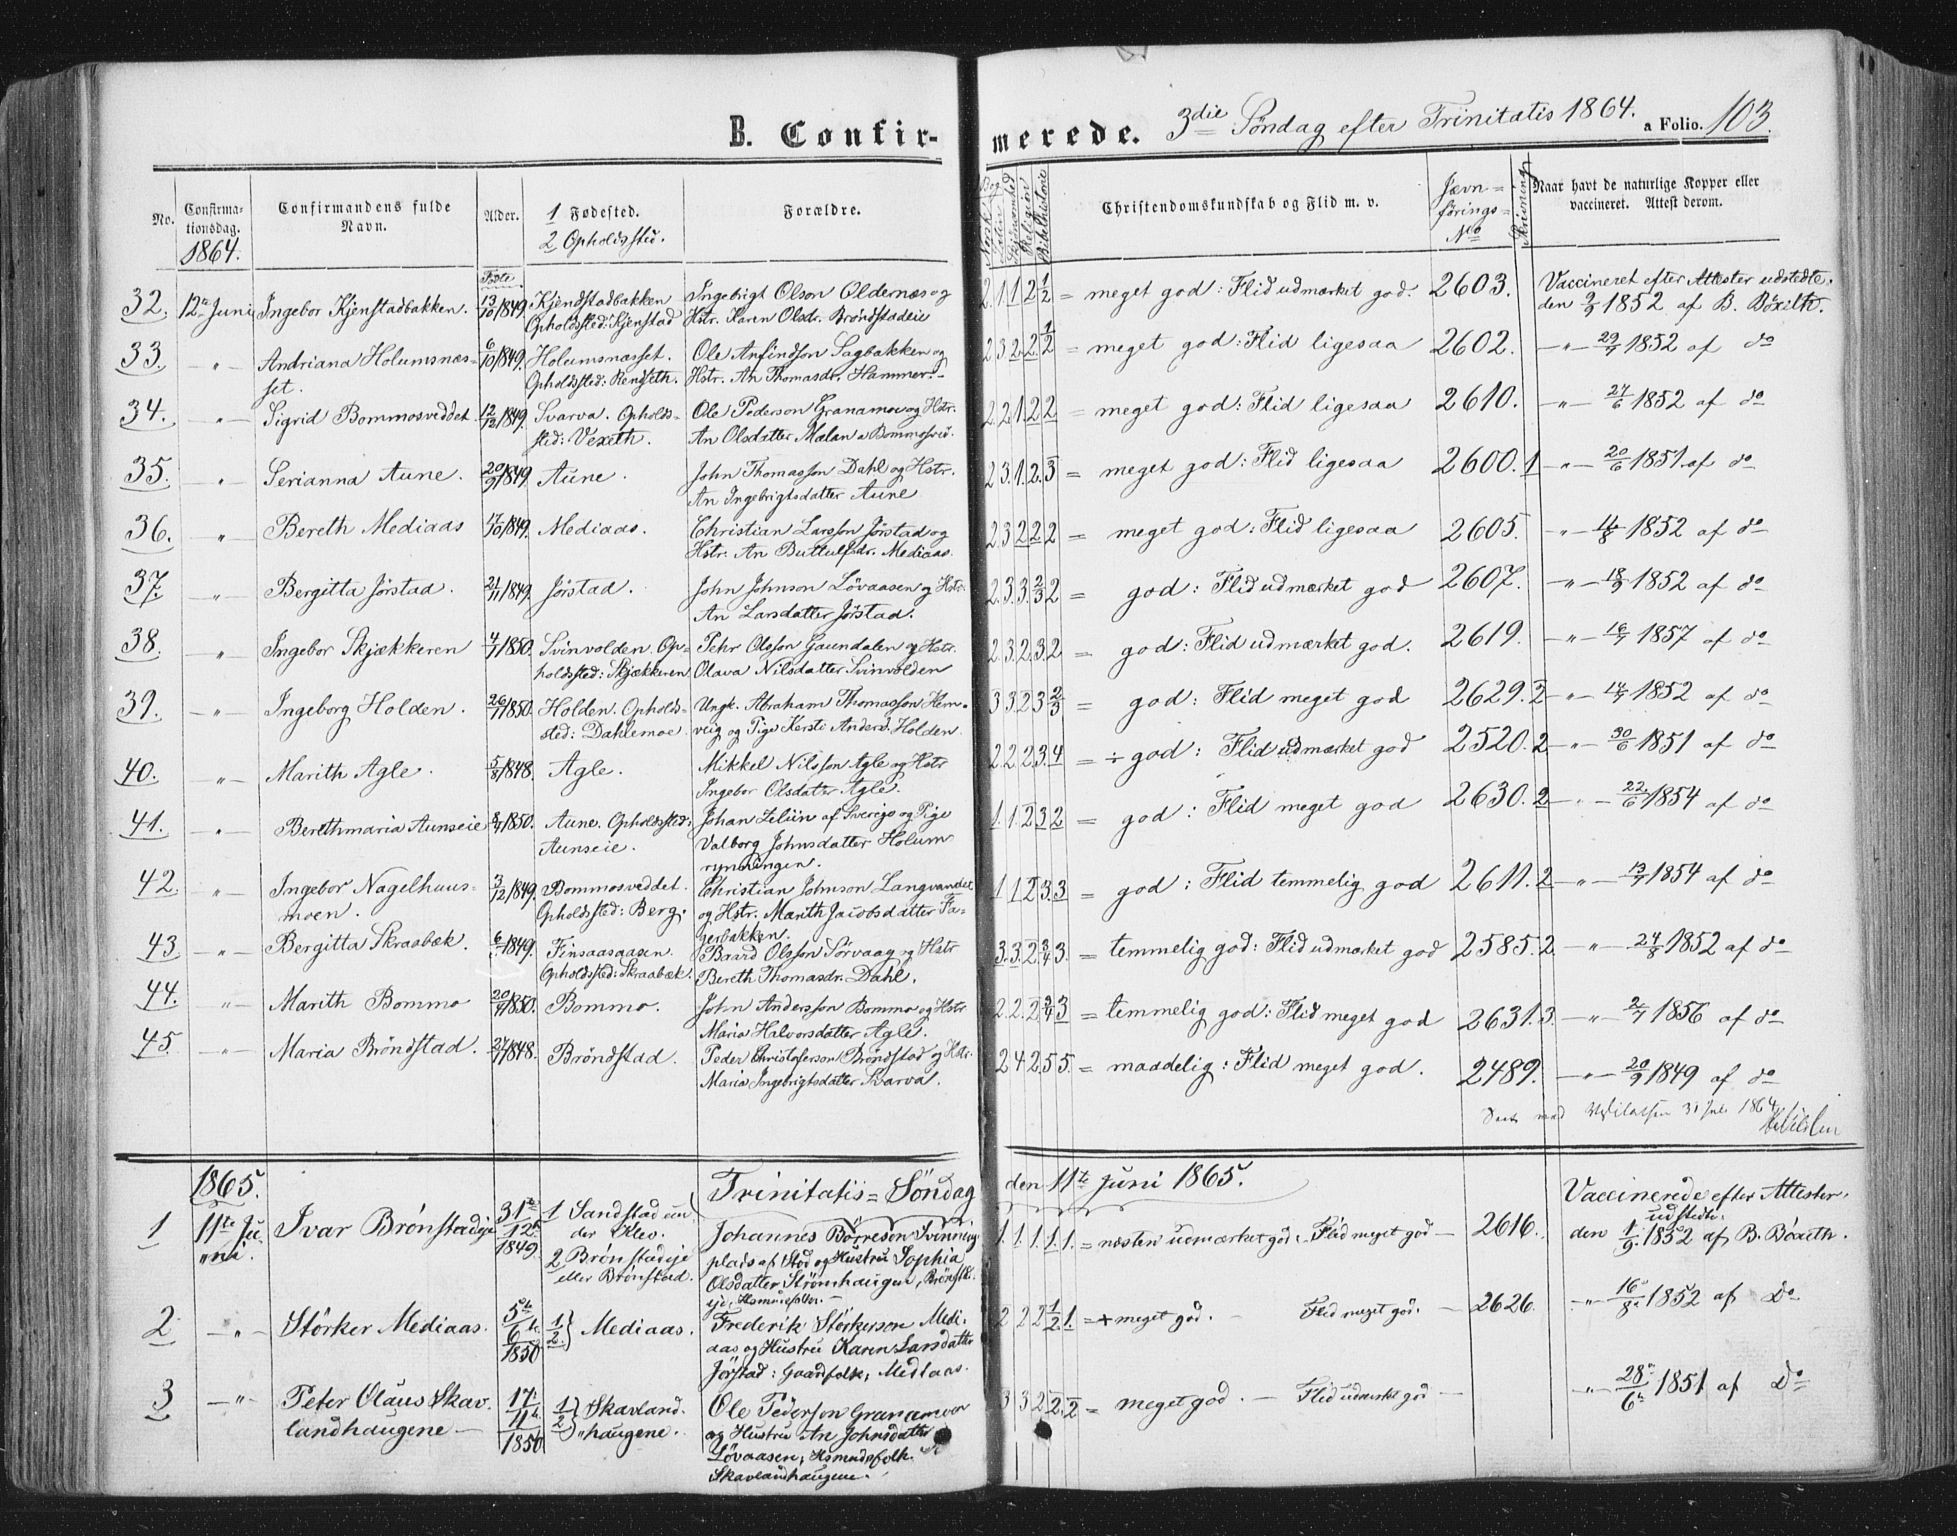 B. Confir-
merede. 3die Søndag efter Trinitatis 1864. a Folio. 103.
No. Confirma-tionsdag. 1864. Confirmandens fulde Navn. Alder. 1 Fødested. 2 Opholdssted. Forældre.
Religion Bibelhistorie Christendomskundskab og Flid m. v. Jævn=førings=No Naar havt de naturlige Kopper eller vaccineret. Attest derom.
Føde
32. 12te Juni Ingebor Kjenstadbakken. 13/10 1849. Kjendstadbakken Ingebrigt Olson Oldernæs og
Opholdssted: Kjenstad Hstr. Karen Olsdr. Bröndstadeie
2. 1. 1. 2 1/2 = meget god: Flid udmærket god. 2603. Vaccineret efter Attester udstedte.
den 2/9 1852 af B. Böxeth.
33. -"- Andriana Holumsnæs= 6/10 1849. Holumsnæsset. Ole Anfindson Sagbakken og
set. Opholdssted: Rendseth. Hstr. An Thomasdr. Hammer.
2 3 2. 2. 1/2 = meget god: Flid ligesaa 2602. -"- 29/7 1852 af do
34. -"- Sigrid Bommosveddet. 12/12 1849. Svarva. Opholds= Ole Pederson Granamoe og Hstr.
sted: Vexeth. An Olsdatter Mælan a Bommosvd.
2 2. 1. 2 2 = meget god: Flid ligesaa 2610. -"- 27/6 1852 af do
35. -"- Serianna Aune. 20/9 1849. Aune. John Thomasson Dahl og Hstr.
An Ingebrigtsdatter Aune
2 3. 1. 2. 3 = meget god: Flid ligesaa 2600. 1 -"- 20/6 1851 af do
36. -"- Bereth Mediaas 17/10 1849. Mediaas. Christian Larsson Jörstad og
Hstr. An Buttulfsdr. Mediaas.
2. 3 2 2 2 = meget god: Flid ligesaa 2605. -"- 1852 af do
37. -"- Bergitta Jörstad. 21/11 1849. Jörstad. John Johnson Lövaasen og Hstr.
An Larsdatter Jörstad.
2. 3. 3. 2/3 2 = god: Flid udmærket god 2607. -"- 18/9 1852 af do
38. -"- Ingebor Skjækkeren 4/1 1850. Svinvolden. Op= Pehr Olsson Gaundalen og Hstr.
holdssted: Skjækkeren Olava Nilsdatter Svinvolden
2. 3. 2. 3. 2 = god: Flid udmærket god. 2619. -"- 16/7 1857 af do
39. -"- Ingeborg Holden. 26/1 1850. Holden. Opholds= Ungk. Abraham Thomasson Hem=
sted: Dahlemoe veig og Pige Kersti Andersd. Holden.
3 3. 2 3 2/3 = god: Flid meget god 2629. 2 -"- 1852 af do
40. -"- Marith Agle. 5/8 1848. Agle. Mikkel Nilsson Agle og Hstr
Ingebor Olsdatter Agle.
2 2 2 3. 4 = ÷ god: Flid udmærket god 2520. 2 -"- 30/6 1851 af do
41. -"- Berethmaria Aunseie 8/1 1850. Aune. Opholdssted: Johan Leliin af Sverige og Pige
Aunseie. Valborg Johnsdatter Holum=
rynningen.
1. 1. 2 3 2 = god: Flid meget god 2630. 2 -"- 22/6 1854 af do
42. -"- Ingebor Nagelhuus= 3/12 1849. Bommosveddet. Christian Johnson Langvandet
moen. Opholdssted: Berg. og Hstr. Marith Jacobsdatter Fa=
gerbakken.
1 1 2 3. 3 = god: Flid temmelig god 2611. 2 -"- 13/7 1854 af do
43 -"- Bergitta Skraabæk. 1849. Finsaasaasen. Baard Olsson Sørvaag og Hstr
Opholdssted: Skraabæk. Bereth Thomasdr. Dahl.
3. 3. 2 3/4 3. = temmelig god: Flid udmærket god 2585. 2. -"- 24/8 1852 af do
44. -"- Marith Bommo 20/1 1850. Bommo. John Andersson Bommo og Hstr
Maria Halvorsdatter Agle.
2. 2. 2 3/4 3 = temmelig god: Flid meget god 2631. 3. -"- 2/7 1856 af do
45 -"- Maria Bröndstad. 27/1 1848. Bröndstad. Peder Christoferson Bröndstad og Hstr.
Maria Ingebrigtsdatter Svarva.
2 4 2 5 5. = maadelig: Flid meget god. 2489. -"- 20/9 1849 af do
31 Juli 1864
1865. Trinitatis= Söndag den 11te Juni 1865.
1 11te Ju= Ivar Brönstadeje 31te/12te 1849. 1 Sandstad un= Johannes Börreson Svinning
"ni. der Klev. plads af Stod og Hustru Sophia
2 Brönstadeje Olsdatter Strömhaugen, Brönst.
eller Brönstad. eje, Hsmndsfolk.
1. 1. 1. 1. 1. = næsten udmærket god: Flid meget god - 2616. Vaccinerede efter Attester
udstedte.
den 1/9 1852 af B. Böxeth.
2 -"- Störker Mediaas. 5te/6te 1850 1/2 } Mediaas. Frederik Störkerson Medi=
aas og Hustru Karen Larsdatter
Jörstad: Gaardfolk, Mediaas.
2 2 2 1/2 1. = + meget god. - Flid meget god. - 2626. -"- 16/8 1852 af Do
3 -"- Peter Olaus Skav= 17/11 1850 1/2 } Skavland= Ole Pederson Granamoe
landhaugene - "haugene. og Hustru An Johnsdatter
Lövaasen, Hsmndsfolk.
Skavlandhaugene.
3 3 2 2. 2 = meget god. - Flid udmærket god - -"- 28/6 1851 af Do